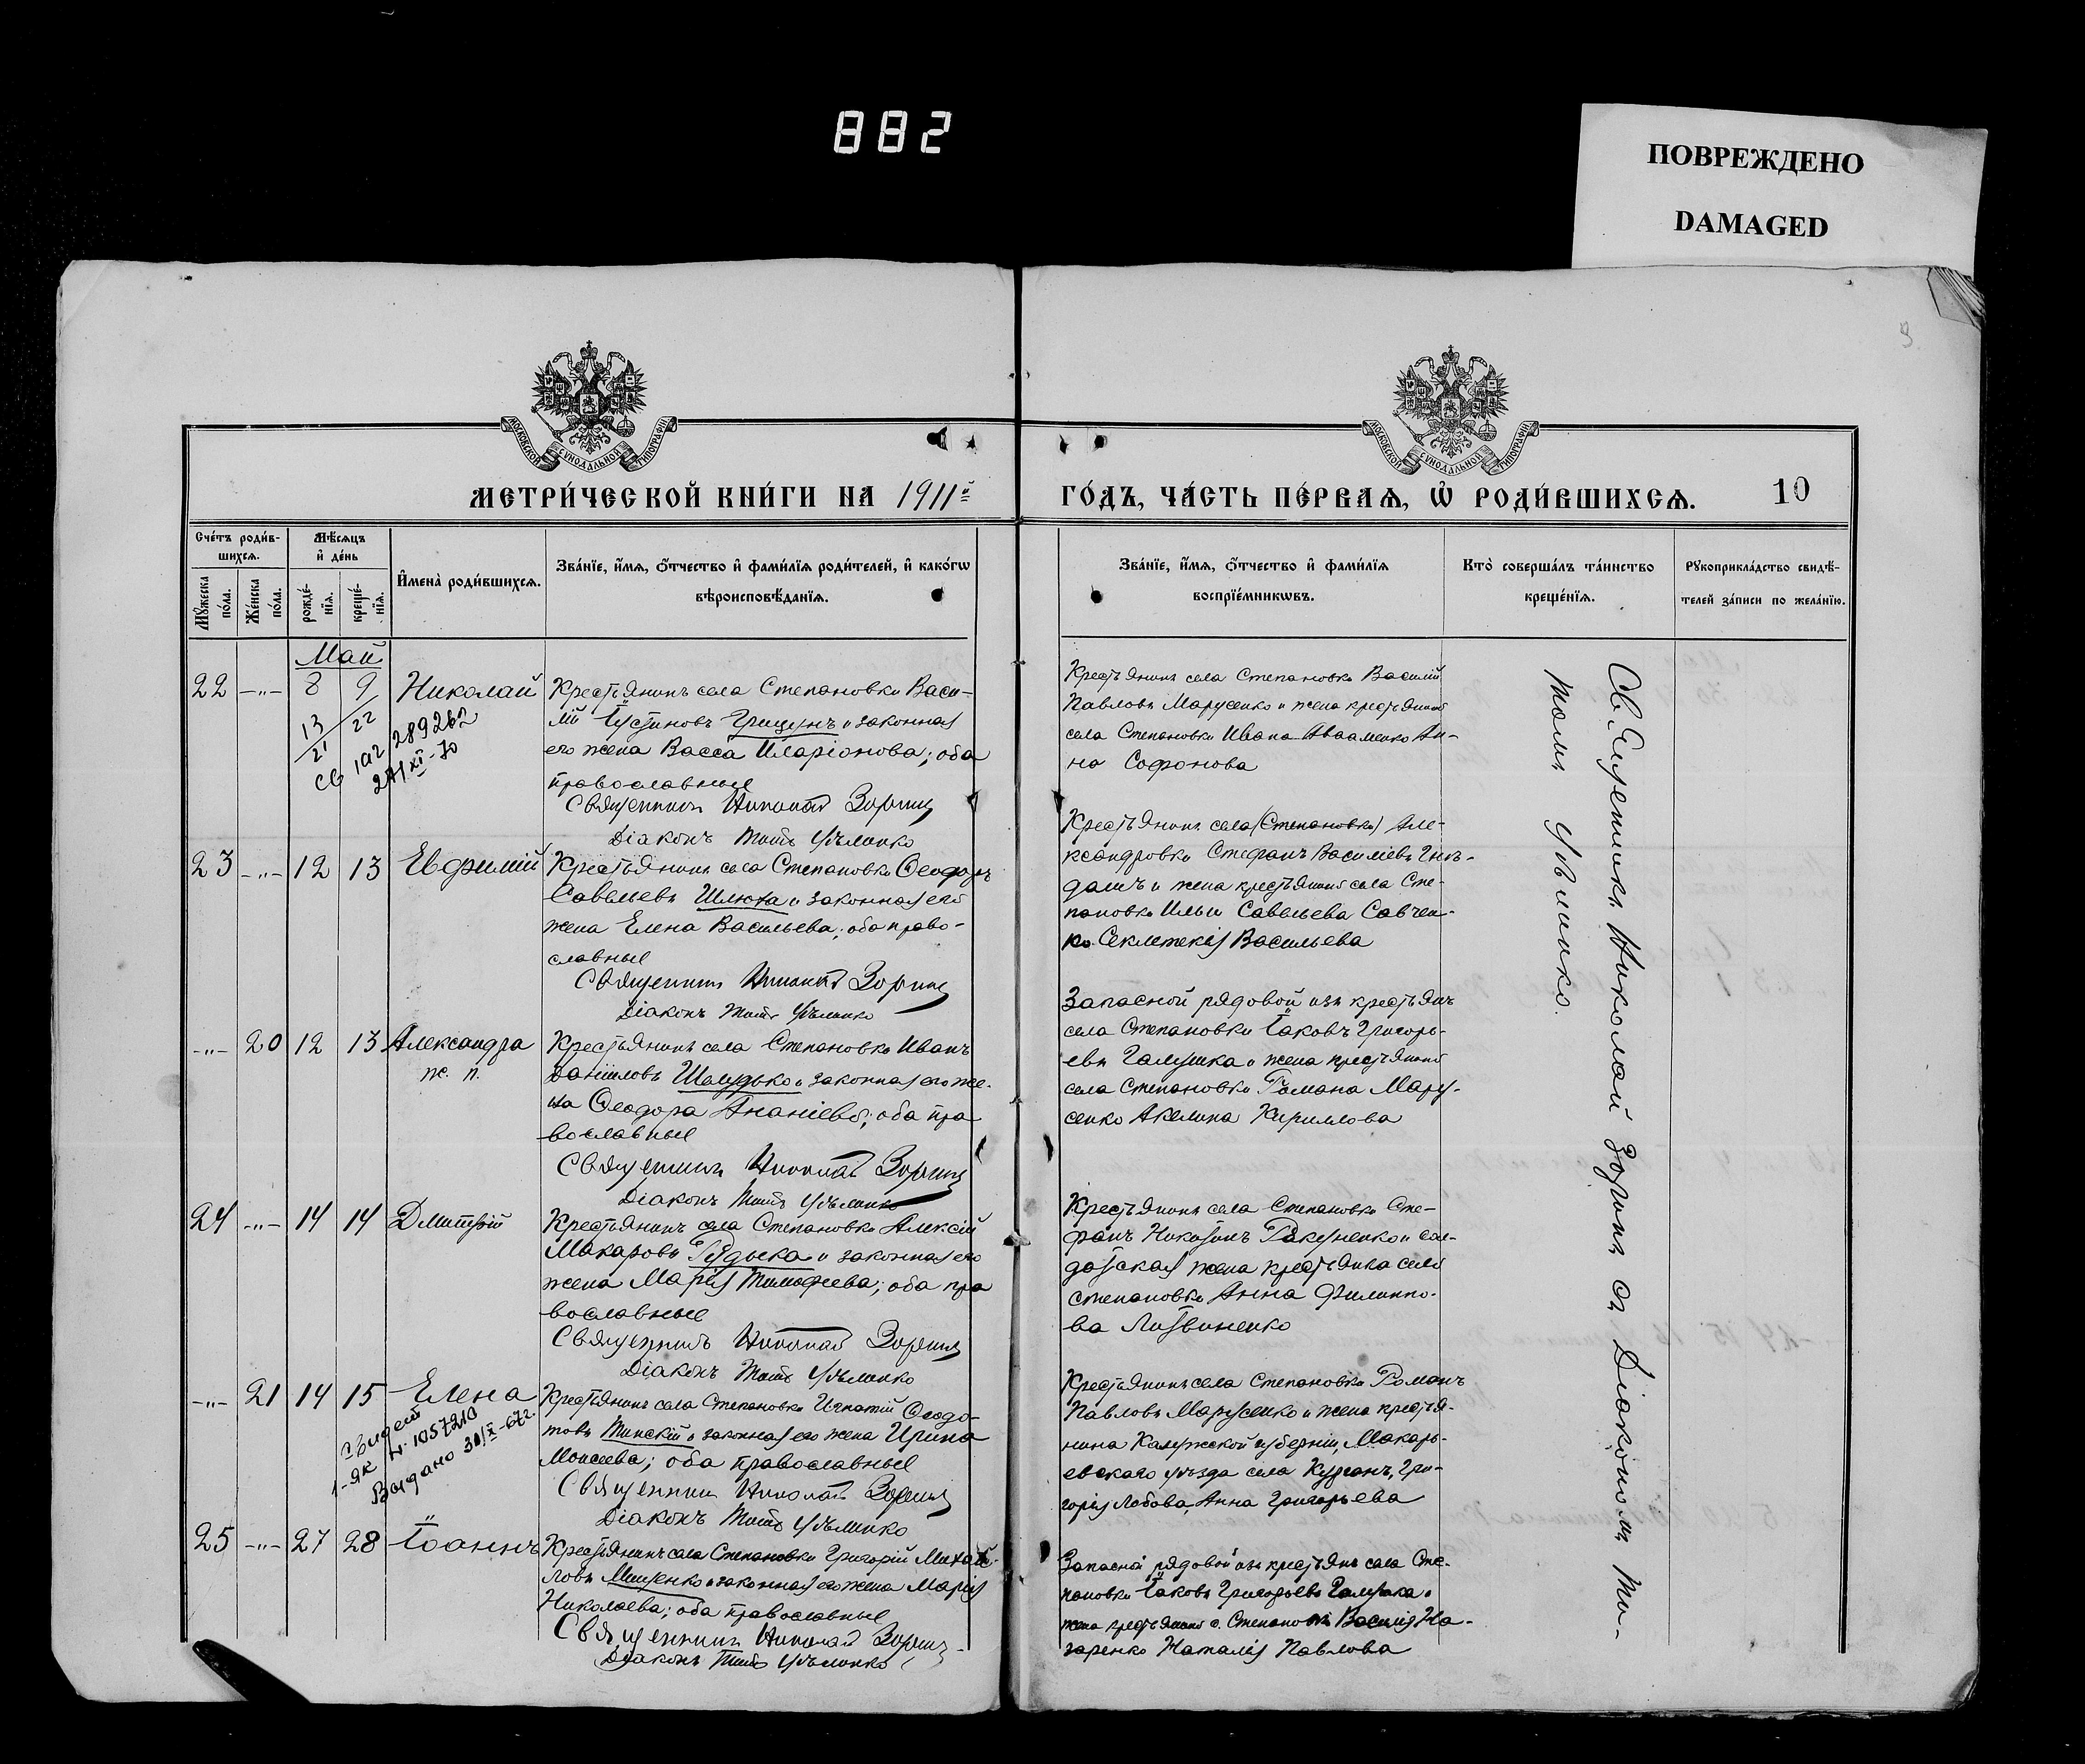 882
ПОВРЕЖДЕНО
DAMAGED
МОСКОВСКОЙ СУНОДАЛЬНОЙ ТИПОГРАФІИ
МОСКОВСКОЙ СУНОДАЛЬНОЙ ТИПОГРАФІИ
МЕТРИ́ЧЕСКОЙ КНИ́ГИ НА 1911й
ГО́ДЪ, ЧА́СТЬ ПЕ́РВАѦ, Ѡ҆ РОДИ́ВШИХСѦ.
10
Сче́тъ роди́в-
шихсѧ.
Мѣ́сѧцъ
и҆ де́нь
Мꙋ́жеска по́ла.
Же́нска по́ла.
рожде́-
нїѧ.
креще́-
нїѧ.
И҆мена̀ роди́вшихсѧ.
Зва́нїе, и҆́мѧ, ѻ҆́тчество и҆ фами́лїѧ роди́телей, и҆ како́гѡ
вѣроисповѣ́данїѧ.
Зва́нїе, и҆́мѧ, ѻ҆́тчество и҆ фами́лїѧ
воспрїе́мникѡвъ.
Кто̀ соверша́лъ та́инство
креще́нїѧ.
Рꙋкоприкла́дство свидѣ́-
телей за́писи по жела́нїю.
Май
22 -„- 8 9 Николай
13/21 22
св 1а2 289262
27/XI-70
Крестьянинъ села Степановки Васи-
лій Іустиновъ Грицунъ и законная
его жена Васса Иларіонова; оба
православные
Священникъ Николай Зоринъ
Діаконъ
Крестьянинъ села Степановки Василій
Павловъ Марусенко и жена крестьянина
села Степановки Ивана Ан-
на Софонова
23 -„- 12 13 Евфимій
Крестьянинъ села Степановки Ѳеодоръ
Савельевъ Шлюха и законная его
жена Елена Васильева; оба право-
славные
Священникъ Николай Зоринъ
Діаконъ
Крестьянинъ села (Степановки) Але-
ксандровки Стефанъ Василіевъ Гнѣ-
дашъ и жена крестьянина села Сте-
пановки Ильи Савельева Савчен-
ко Васильева
-„- 20 12 13 Александра
ж. п.
Крестьянинъ села Степановки Иванъ
Даніиловъ Шелудько и законная его же-
на Ѳеодора Ананіева; оба пра
вославные
Священникъ Николай Зоринъ
Діаконъ
Запасной рядовой изъ крестьянъ
села Степановки Іаковъ Григорь-
евъ Галушка и жена крестьянина
села Степановки Романа Мару-
сенко Акелина Кириллова
24 -„- 14 14 Дмитрій
Крестьянинъ села Степановки Алексій
Макаровъ Гедыка и законная его
жена Марія Тимофеева; оба пра
вославные
Священникъ Николай Зоринъ
Діаконъ
Крестьянинъ села Степановки Сте-
фанъ Ракуненко и сол-
датская жена крестьянка села
Степановки Анна Филиппо-
ва Литвиненко
-„- 21 14 15 Елена
1-ЯК № 1057210
Выдано 31/X-67г.
Крестьянинъ села Степановки Игнатій Ѳеодо-
товъ Тинскій и законная его жена Ирина
Моисеева; оба православные
Священникъ Николай Зоринъ
Діаконъ
Крестьянинъ села Степановки Романъ
Павловъ Марусенко и жена крестья-
нина Калужской губерніи, Макарь-
евскаго уѣзда села Курганъ, Гри-
горія Лобова, Анна Григорьева
25 -„- 27 28 Іоаннъ
Крестьянинъ села Степановки Григорій Михай-
ловъ Мищенко и законная его жена Марія
Николаева; оба православные
Священникъ Николай Зоринъ
Діаконъ
Запасной рядовой изъ крестьянъ села Сте-
пановки Іаковъ Григорьевъ Галушка и
жена крестьянина с. Степановки Василія На-
заренко Наталія Павлова
Священникъ Николай Зоринъ съ Діакономъ Ти-